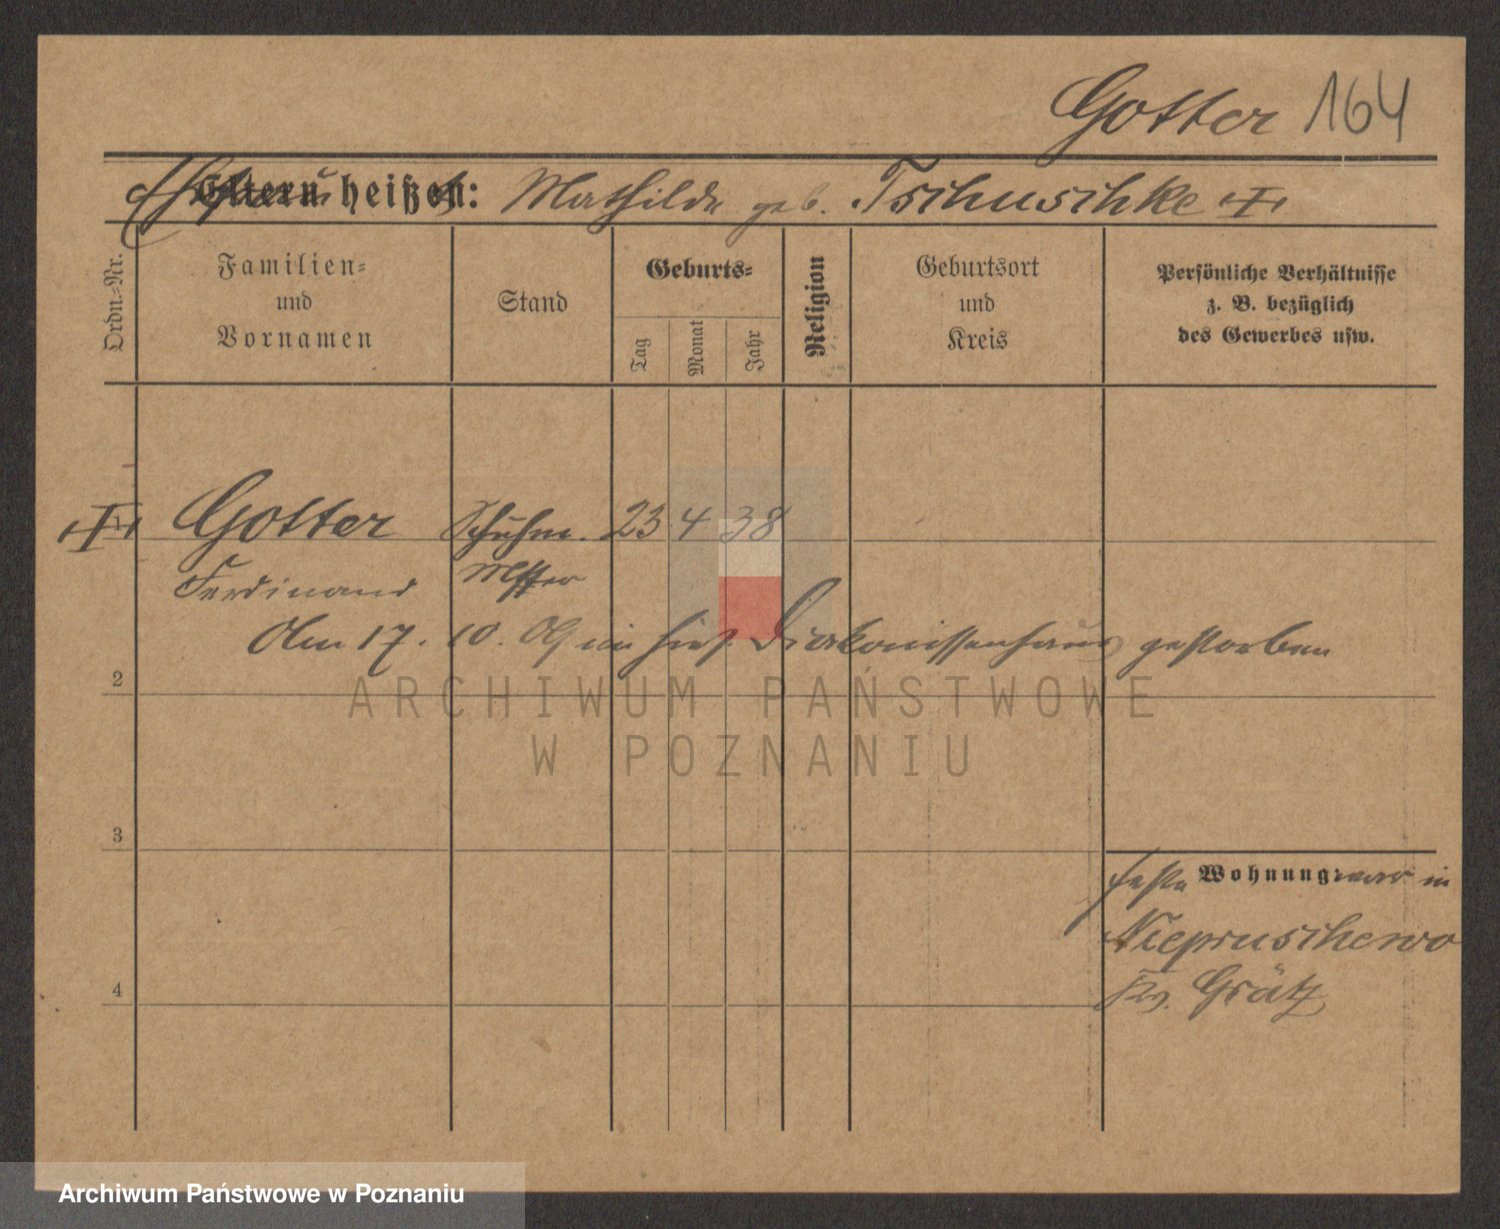 Gotter 164
Eltern heißen: Mathilde geb. Tschuschke
Ordn.-Nr.
Familien-
und
Vornamen
Stand
Geburts-
Tag
Monat
Jahr
Religion
Geburtsort
und
Kreis
Persönliche Verhältnisse
z. B. bezüglich
des Gewerbes usw.
1 Gotter Schuhm. 23 4 38
Ferdinand Mstr
Am 17. 10. 09 im hies. Diakonissenhaus gestorben
2
ARCHIWUM PAŃSTWOWE
W POZNANIU
3
feste Wohnung: war in
Niepruschewo
Kr. Grätz
4
Archiwum Państwowe w Poznaniu